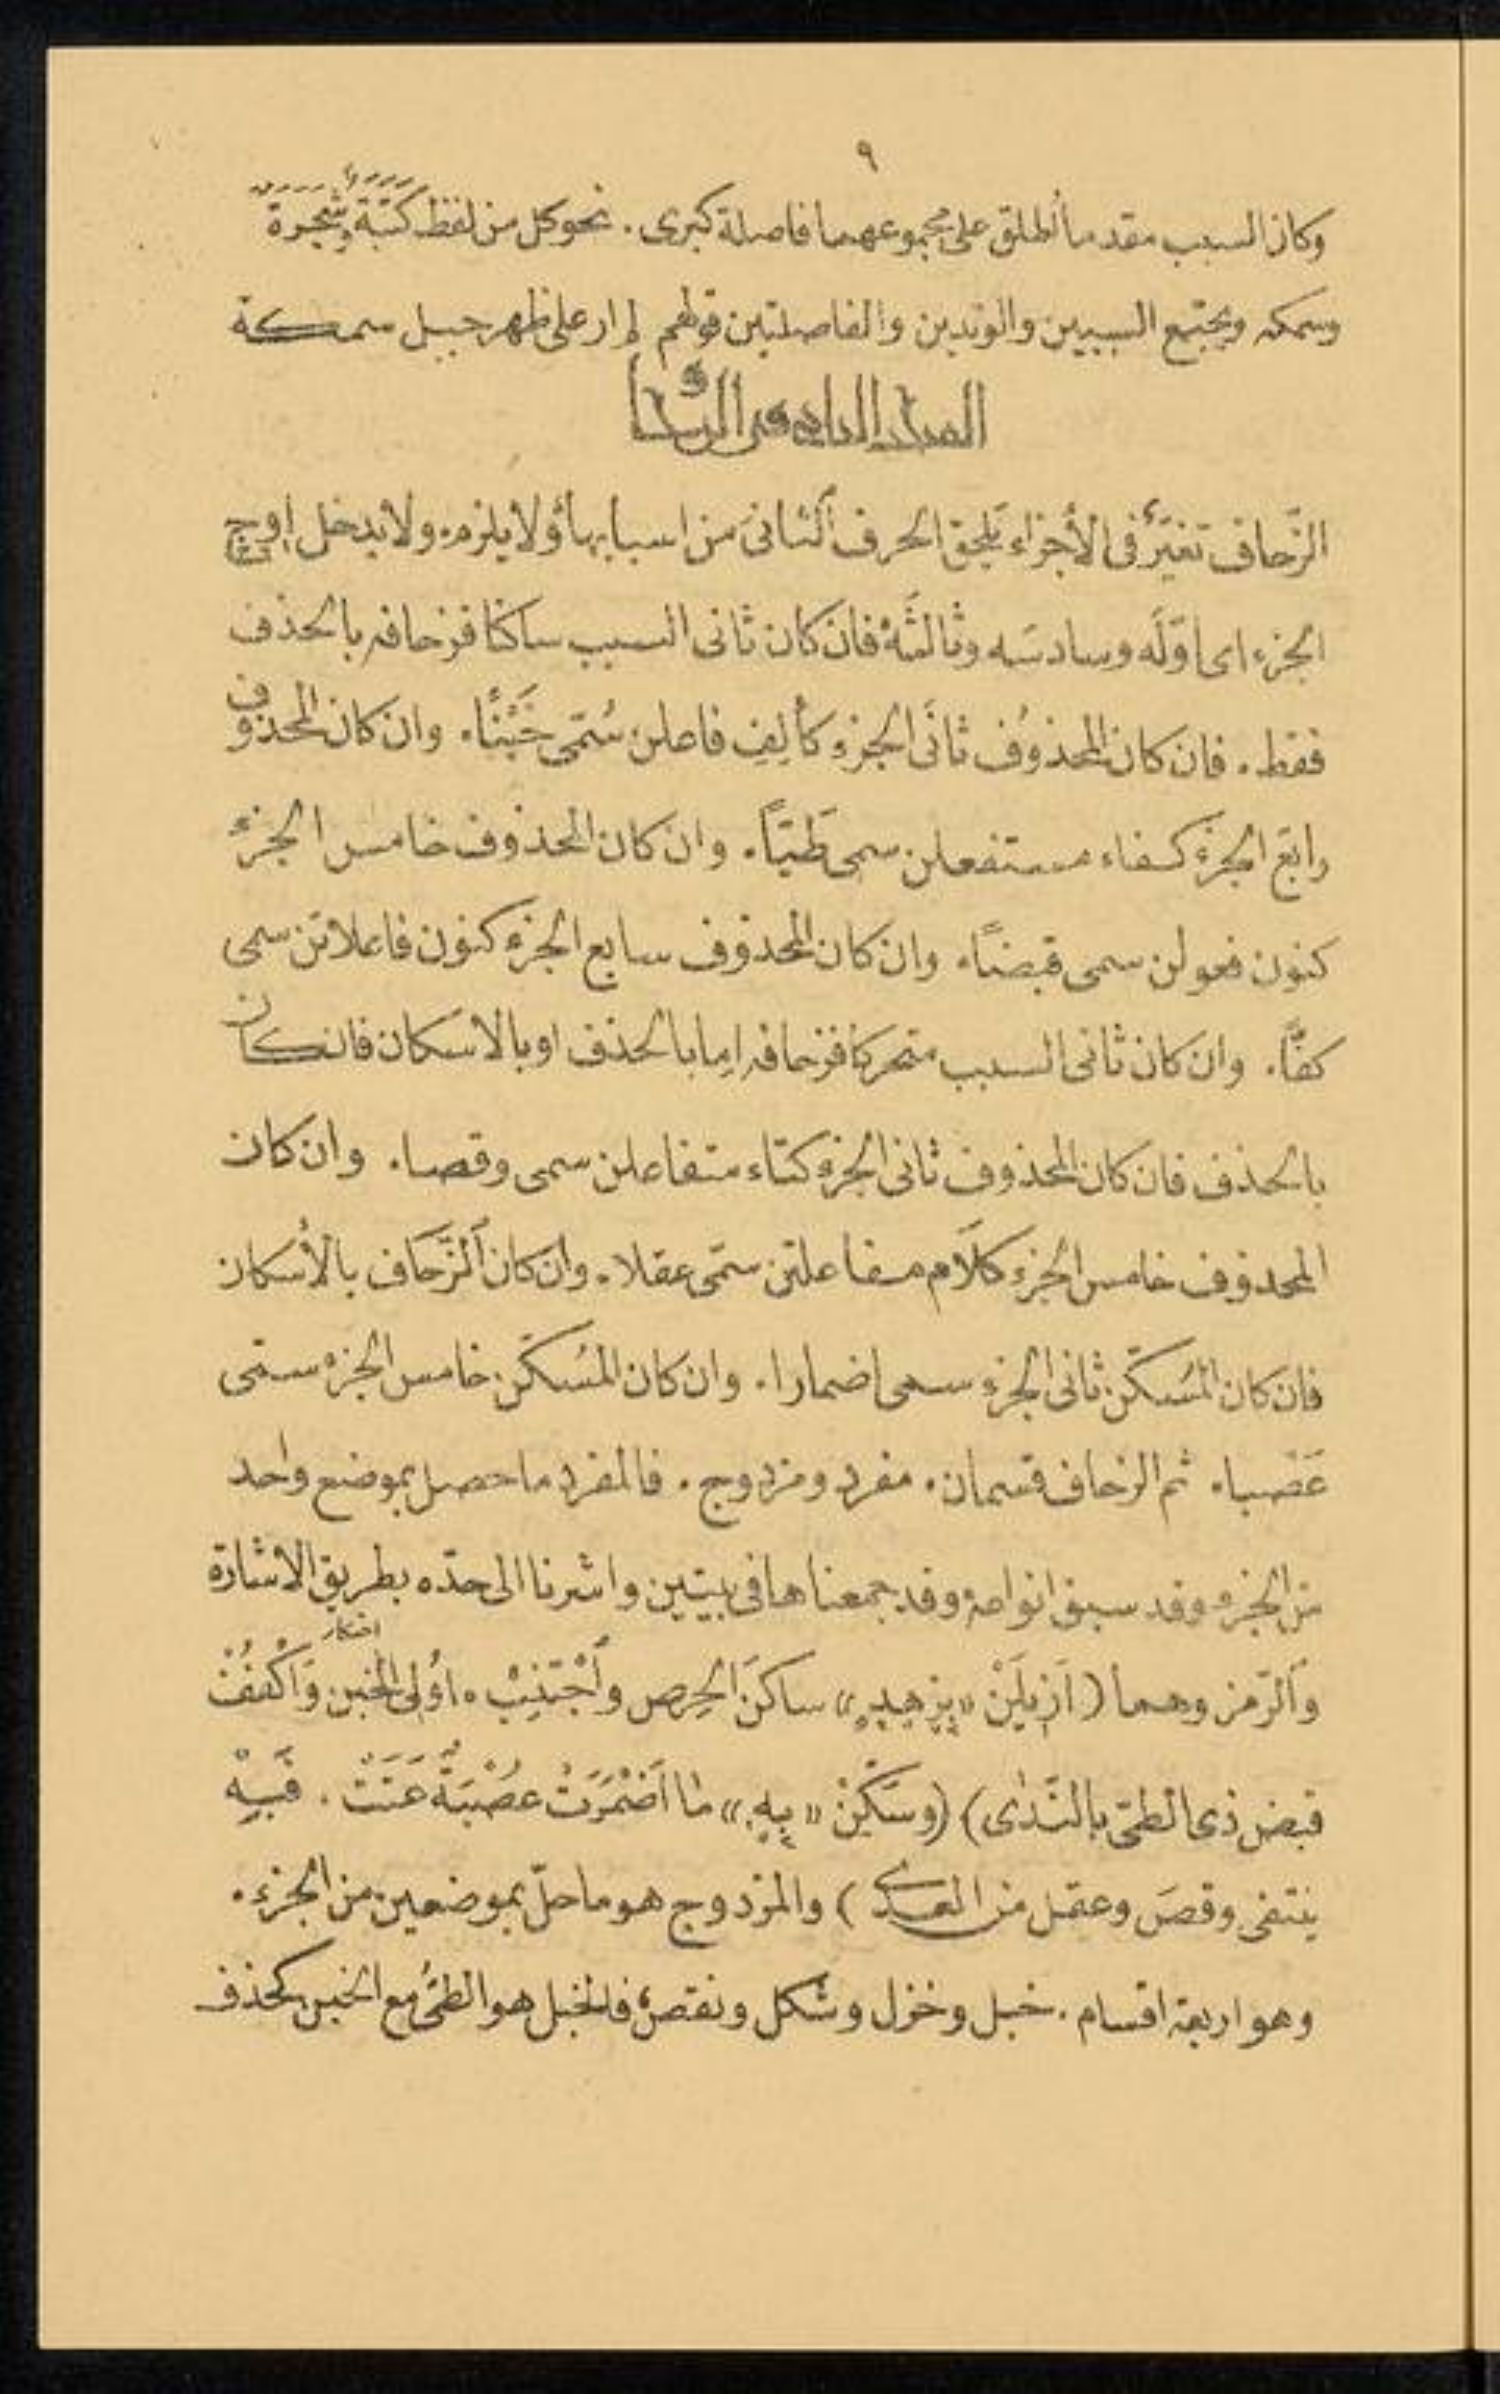 ٩
وكان السبب مقدما أطلق على مجموعهما فاصلة كبرى . نحو كل من لفظ كتبة وشجرة
وسمكه ويجتمع السببين والوتدين والفاصلتين قولهم لم ار على ظهر جبل سمكة
الزّحاف تغيّر فى الأجزاء يلحق الحرف الثانى من اسبابها ولا يلزم ولا يدخل اوج
الجزء اى اوّلَه وسادسَه وثالثَهُ فان كان ثانى السبب ساكنا فزحافه بالحذف
فقط . فان كان المحذوُف ثانَى الجزء كألِفِ فاعلن سُمّى خَبْنًا . وان كان المحذوف
رابعَ الجزء كفاء مستفعلن سمى طَيّاً . وان كان المحذوف خامس الجزء
كنون فعولن سمى قبضاً . وان كان المحذوف سابع الجزء كنون فاعلاتن سمى
كفّاً . وان كان ثانى السبب متحركا فزحافه اما بالحذف او بالاسكان فان كان
بالحذف فان كان المحذوف ثانى الجزء كتاء متفاعلن سمى وقصا . وان كان
المحذوف خامس الجزء كلَام مفاعلتن سمّى عقلا . وان كان اَلزّحَاف بالأسكان
فان كان المُسَكّن ثانى الجزء سمى اضمارا . وان كان المُسَكّن خامس الجزء سمّى
عَصْبا . ثم الزحاف قسمان . مفرد ومزدوج . فالمفرد ما حصل بموضع واحد
من الجزء وقد سبق انواعه وقد جمعناها فى بيتين واشرنا الى حدّه بطريق الاشارة
واَلرّمز وهما ( اَزِيلَنْ « بِزهدٍ » ساكنَ الحِرص وأَجْتَنِبْ . اوُلِى الخبن وَاكْفُفْ
قبض ذى الطىّ بالنَّدٰى ) ( وسَكّنْ « بِهٖ » مٰا اَضْمَرَتْ عُصْبَةٌ عَنَتْ . فَبِهْ
ينتفى وقصَ وعقل من العدى ) والمزدوج هو ما حلّ بموضعين من الجزء .
وهو اربعة اقسام . خبل وخزل وشكل ونقص، فالخبل هو الطىُّ مع الخبن كحذف